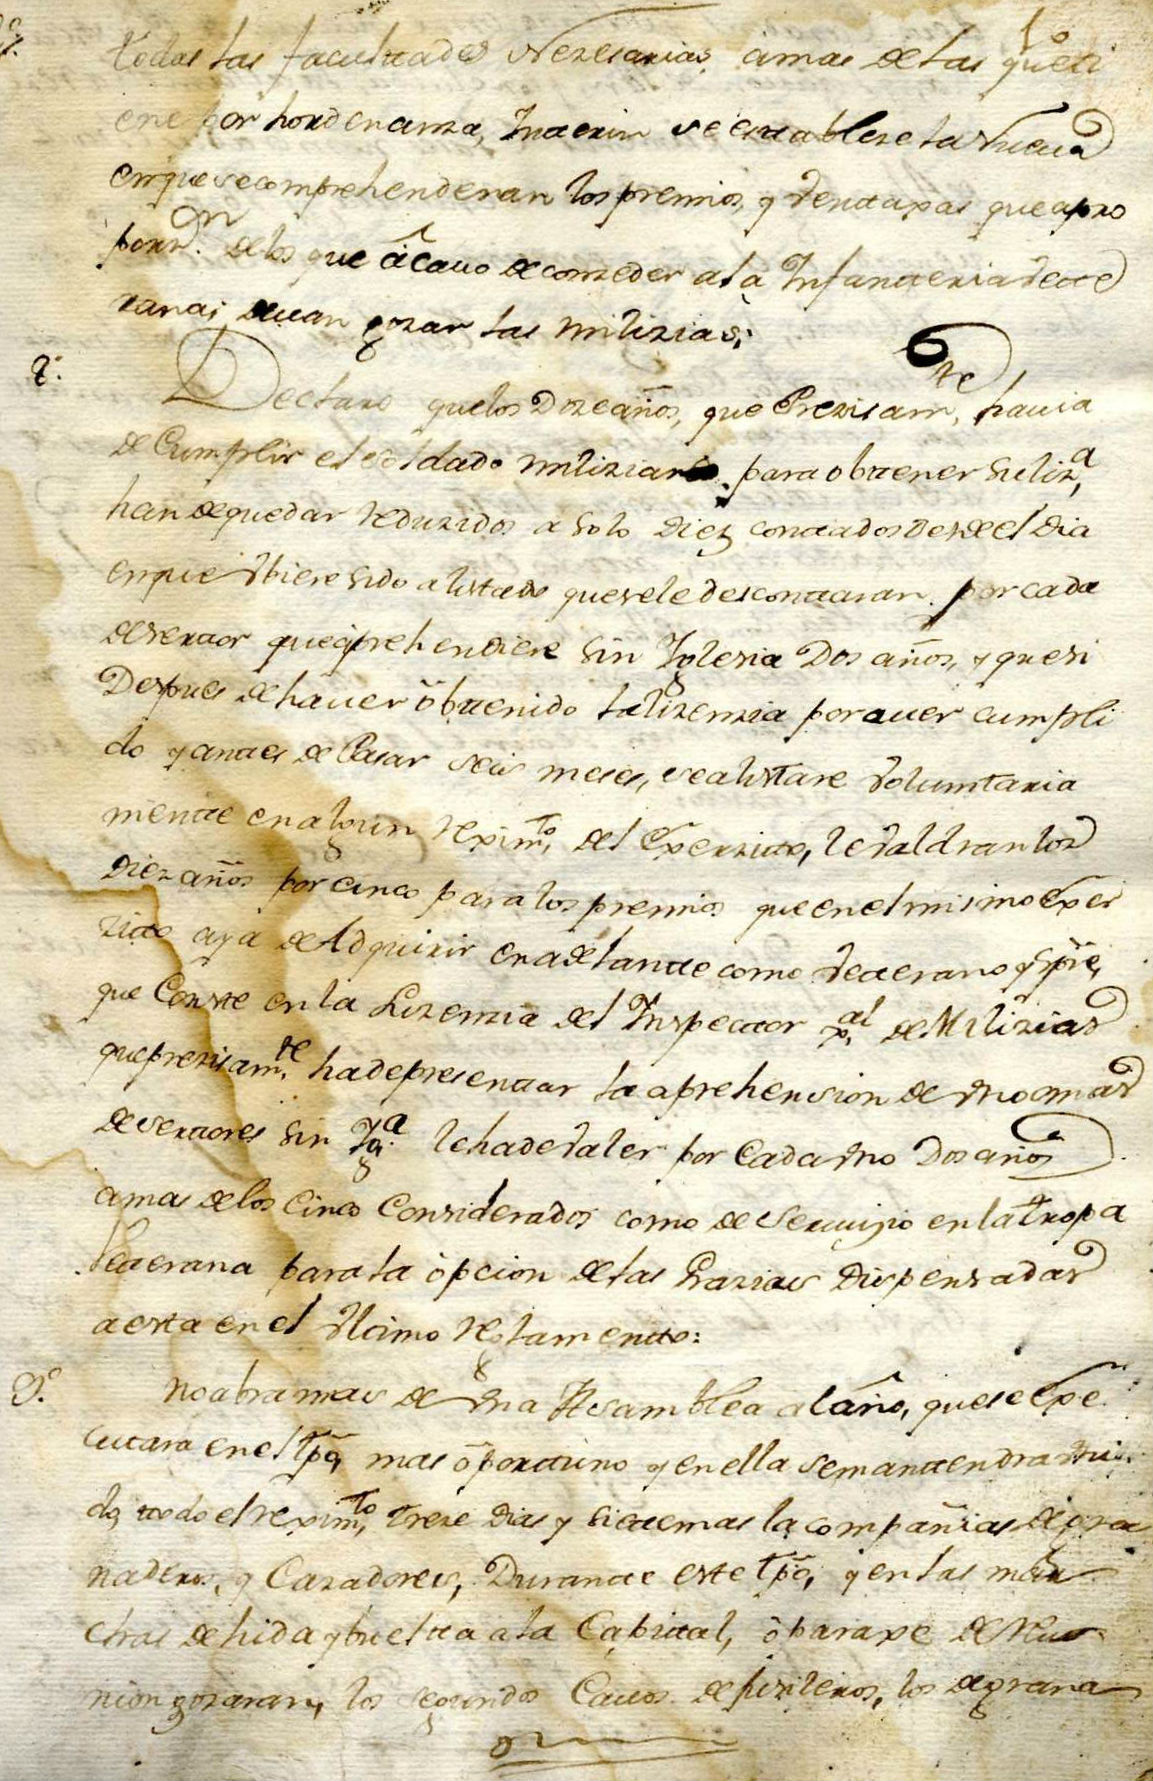 todas las facultades Nezesarias, amas de las que ti
ene por hordenanza, Interin se establese la Nueva
en que se comprehenderan los premios, y Ventaxas que apro
porz.n de los que acavo de conzeder a la Infanteria Vete
rana; devan gozar las milizias;
8.º Declaro que los Doze años, que Prezisam.te havia
de Cumplir el soldado miliziano para obtener su liz.a
han de quedar reduzidos a solo Diez contados desde el Dia
en que Vbiere sido alistado que se le descontaran por cada
desertor que aprehendiere sin Yglesia Dos años, y que si
Despues de haver obtenido la lizenzia por aver cumpli
do y antes de Pasar seis meses, se alistare Voluntaria
mente en algun rexim.to del Exerzito, le Valdran los
Diez años por cinco para los premios que en el mismo Exer
zito aya de Adquirir en adelante como Veterano y spre,
que Conste en la Lizenzia del Inspector g.al de Milizias
que prezisam.te ha de presentar la aprehension de Vno o mas
desertores sin Yg.a le ha de Valer por Cada Vno Dos años
amas de los Cinco Considerados como de servizio en la tropa
Veterana para la opcion de las Grazias Dispensadas
a esta en el Vltimo Reglamento:
9.º No abra mas de Vna Asamblea al año, que se Exe
cutara en el tpo, mas oportuno y en ella se mantendra Vni
do, todo el rexim.to, treze Dias y siete mas la compañias de gra
naderos, y Cazadores, Durante este tpo, y en las mar
chas de hida y buelta a la Capital, o paraxe de reu
nion gozaran, los segundos Cavos de fusileros, los de grana